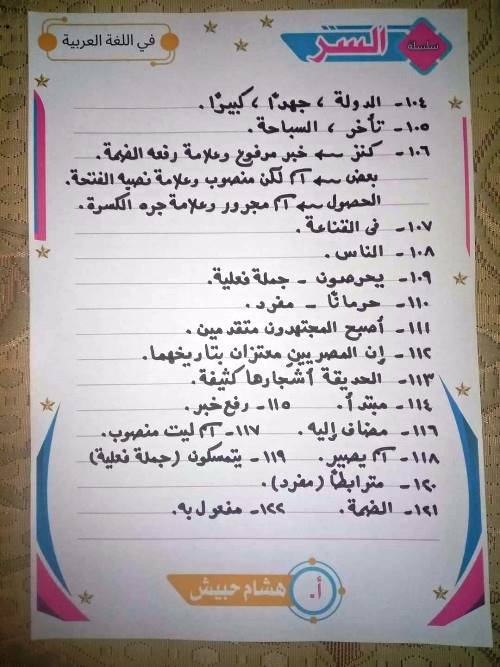 سلسلة
السر
في اللغة العربية
١٠٤- الدولة ، جهدًا ، كبيرًا.
١٠٥- تأخر ، السباحة.
١٠٦- كنز ← خبر مرفوع وعلامة رفعه الضمة.
بعض ← اسم لكن منصوب وعلامة نصبه الفتحة.
الحصول ← اسم مجرور وعلامة جره الكسرة.
١٠٧- فى القناعة.
١٠٨- الناس.
١٠٩- يحرصون - جملة فعلية.
١١٠- حرمانًا - مفرد.
١١١- أصبح المجتهدون متقدمين.
١١٢- إن المصريينِ معتزان بتاريخهما.
١١٣- الحديقة أشجارها كثيفة.
١١٤- مبتدأ. ١١٥- رفع خبر.
١١٦- مضاف إليه. ١١٧- اسم ليت منصوب.
١١٨- اسم يصير. ١١٩- يتمسكون (جملة فعلية)
١٢٠- مترابطًا (مفرد).
١٢١- الضمة. ١٢٢- مفعول به.
أ. هشام حبيش